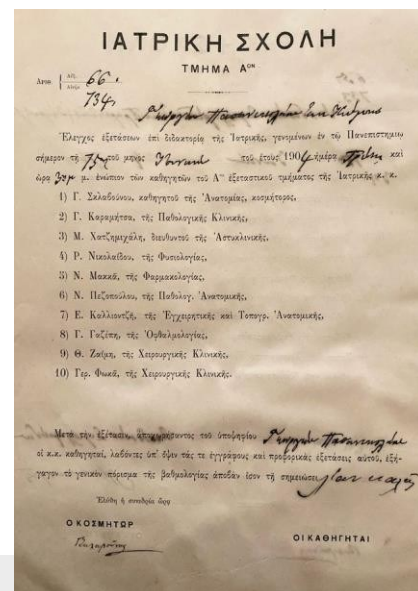 ΙΑΤΡΙΚΗ ΣΧΟΛΗ
ΤΜΗΜΑ Αον
Αριθ. Πρ. 66.
734
Γεωργίου Παπανικολάου εκ Κύμης
Ἔλεγχος ἐξετάσεων ἐπὶ διδακτορίᾳ τῆς Ἰατρικῆς, γενομένων ἐν τῷ Πανεπιστημίῳ
σήμερον τῇ τοῦ μηνὸς τοῦ ἔτους 1904 ἡμέρᾳ καὶ
ὥρᾳ μ. ἐνώπιον τῶν καθηγητῶν τοῦ Αου ἐξεταστικοῦ τμήματος τῆς Ἰατρικῆς κ. κ.
1) Γ. Σκλαβούνου, καθηγητοῦ τῆς Ἀνατομίας, κοσμήτορος,
2) Γ. Καραμήτσα, τῆς Παθολογικῆς Κλινικῆς,
3) Μ. Χατζημιχάλη, διευθυντοῦ τῆς Ἀστυκλινικῆς,
4) Ρ. Νικολαΐδου, τῆς Φυσιολογίας,
5) Ν. Μακκᾶ, τῆς Φαρμακολογίας,
6) Ν. Πεζοπούλου, τῆς Παθολογ. Ἀνατομικῆς,
7) Ε. Καλλιοντζῆ, τῆς Ἐγχειρητικῆς καὶ Τοπογρ. Ἀνατομικῆς,
8) Γ. Γαζέπη, τῆς Ὀφθαλμολογίας,
9) Θ. Ζαΐμη, τῆς Χειρουργικῆς Κλινικῆς,
10) Γερ. Φωκᾶ, τῆς Χειρουργικῆς Κλινικῆς.
Μετὰ τὴν ἐξέτασιν, ἀποχωρήσαντος τοῦ ὑποψηφίου Γεωργίου Παπανικολάου
οἱ κ.κ. καθηγηταί, λαβόντες ὑπ' ὄψιν τάς τε ἐγγράφους καὶ προφορικὰς ἐξετάσεις αὐτοῦ, ἐξή-
γαγον τὸ γενικὸν πόρισμα τῆς βαθμολογίας ἀποβὰν ἴσον τῇ σημειώσει λίαν καλῶς
Ἐλύθη ἡ συνεδρία ὥρᾳ
Ο ΚΟΣΜΗΤΩΡ
ΟΙ ΚΑΘΗΓΗΤΑΙ